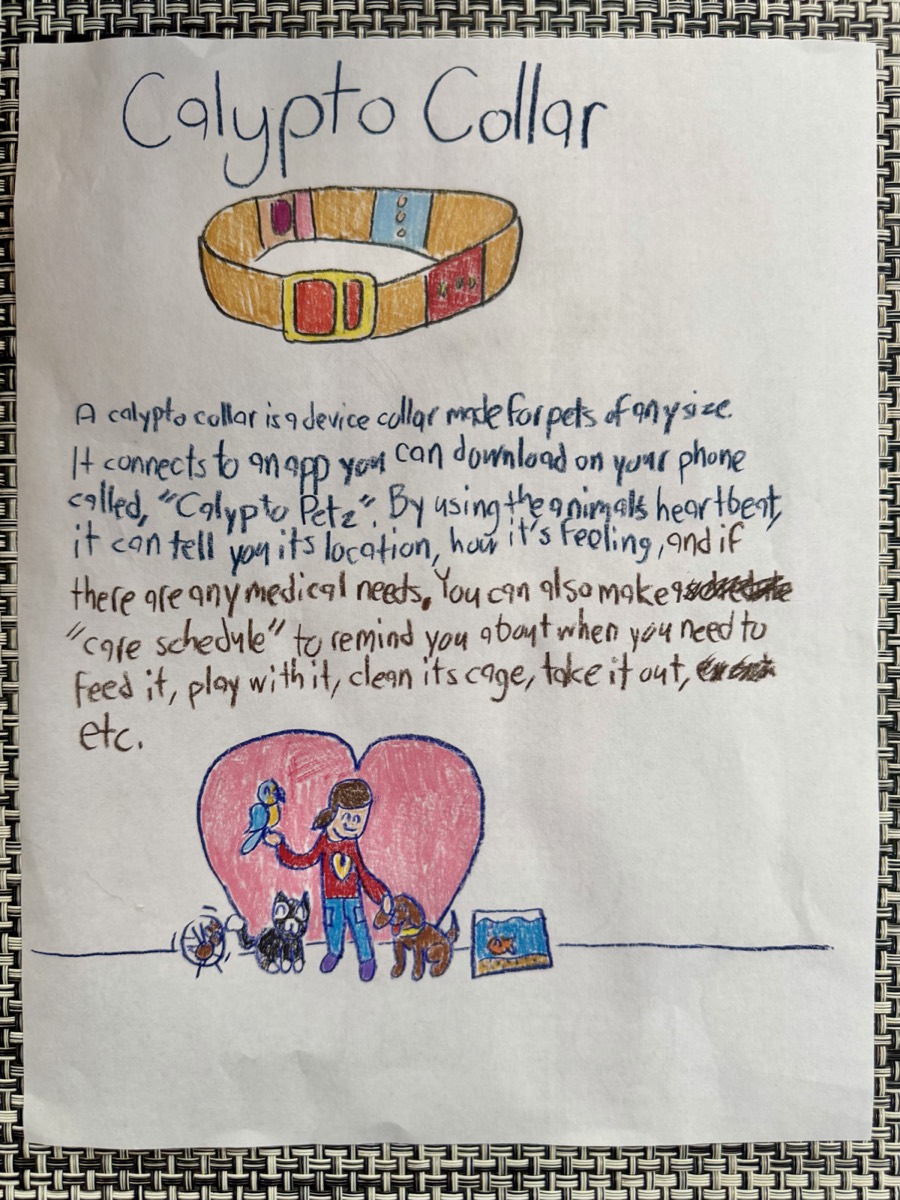 Calypto Collar
A calypto collar is a device collar made for pets of any size.
It connects to an app you can download on your phone
called, "Calypto Petz". By using the animals heartbeat,
it can tell you its location, how it's feeling, and if
there are any medical needs. You can also make a
"care schedule" to remind you about when you need to
feed it, play with it, clean its cage, take it out,
etc.